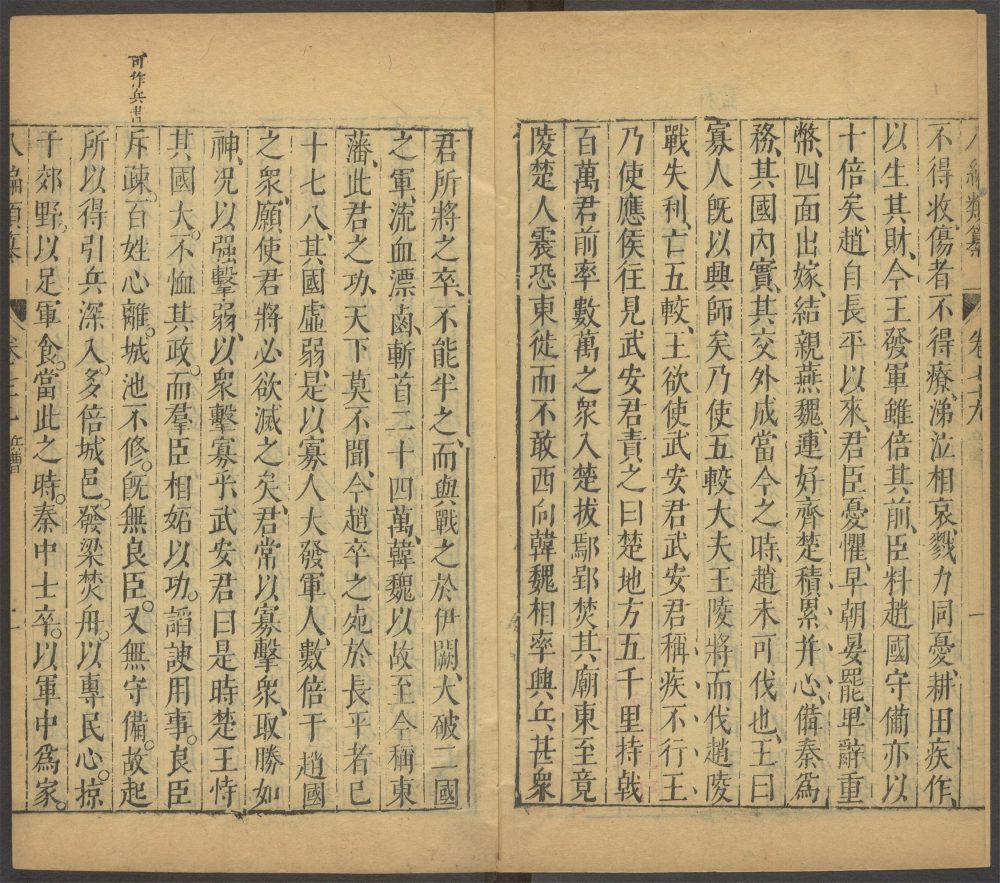 八編類纂 卷七十九 一
不得收傷者不得療涕泣相哀戮力同憂耕田疾作
以生其財今王發軍雖倍其前臣料趙國守備亦以
十倍矣趙自長平以來君臣憂懼早朝晏罷早辭重
幣四面出嫁結親燕魏連好齊楚積累并心備秦爲
務其國內實其交外成當今之時趙未可伐也王曰
寡人旣以興師矣乃使五較大夫王陵將而伐趙陵
戰失利亡五較王欲使武安君武安君稱疾不行王
乃使應侯往見武安君責之曰楚地方五千里持戟
百萬君前率數萬之衆入楚拔鄢郢焚其廟東至竟
陵楚人震恐東徙而不敢西向韓魏相率興兵甚衆
君所將之卒不能半之而與戰之於伊闕大破二國
之軍流血漂鹵斬首二十四萬韓魏以故至今稱東
藩此君之功天下莫不聞今趙卒之死於長平者已
十七八其國虛弱是以寡人大發軍人數倍于趙國
之衆願使君將必欲滅之矣君常以寡擊衆取勝如
神况以强擊弱以衆擊寡乎武安君曰是時楚王恃
其國大。不恤其政。而羣臣相妬以功。謟諛用事。良臣
可作兵書
斥疎。百姓心離。城池不修。旣無良臣。又無守備。故起
所以得引兵深入。多倍城邑。發梁焚舟。以專民心。掠
于郊野。以足軍食。當此之時。秦中士卒。以軍中爲家。
八編類纂